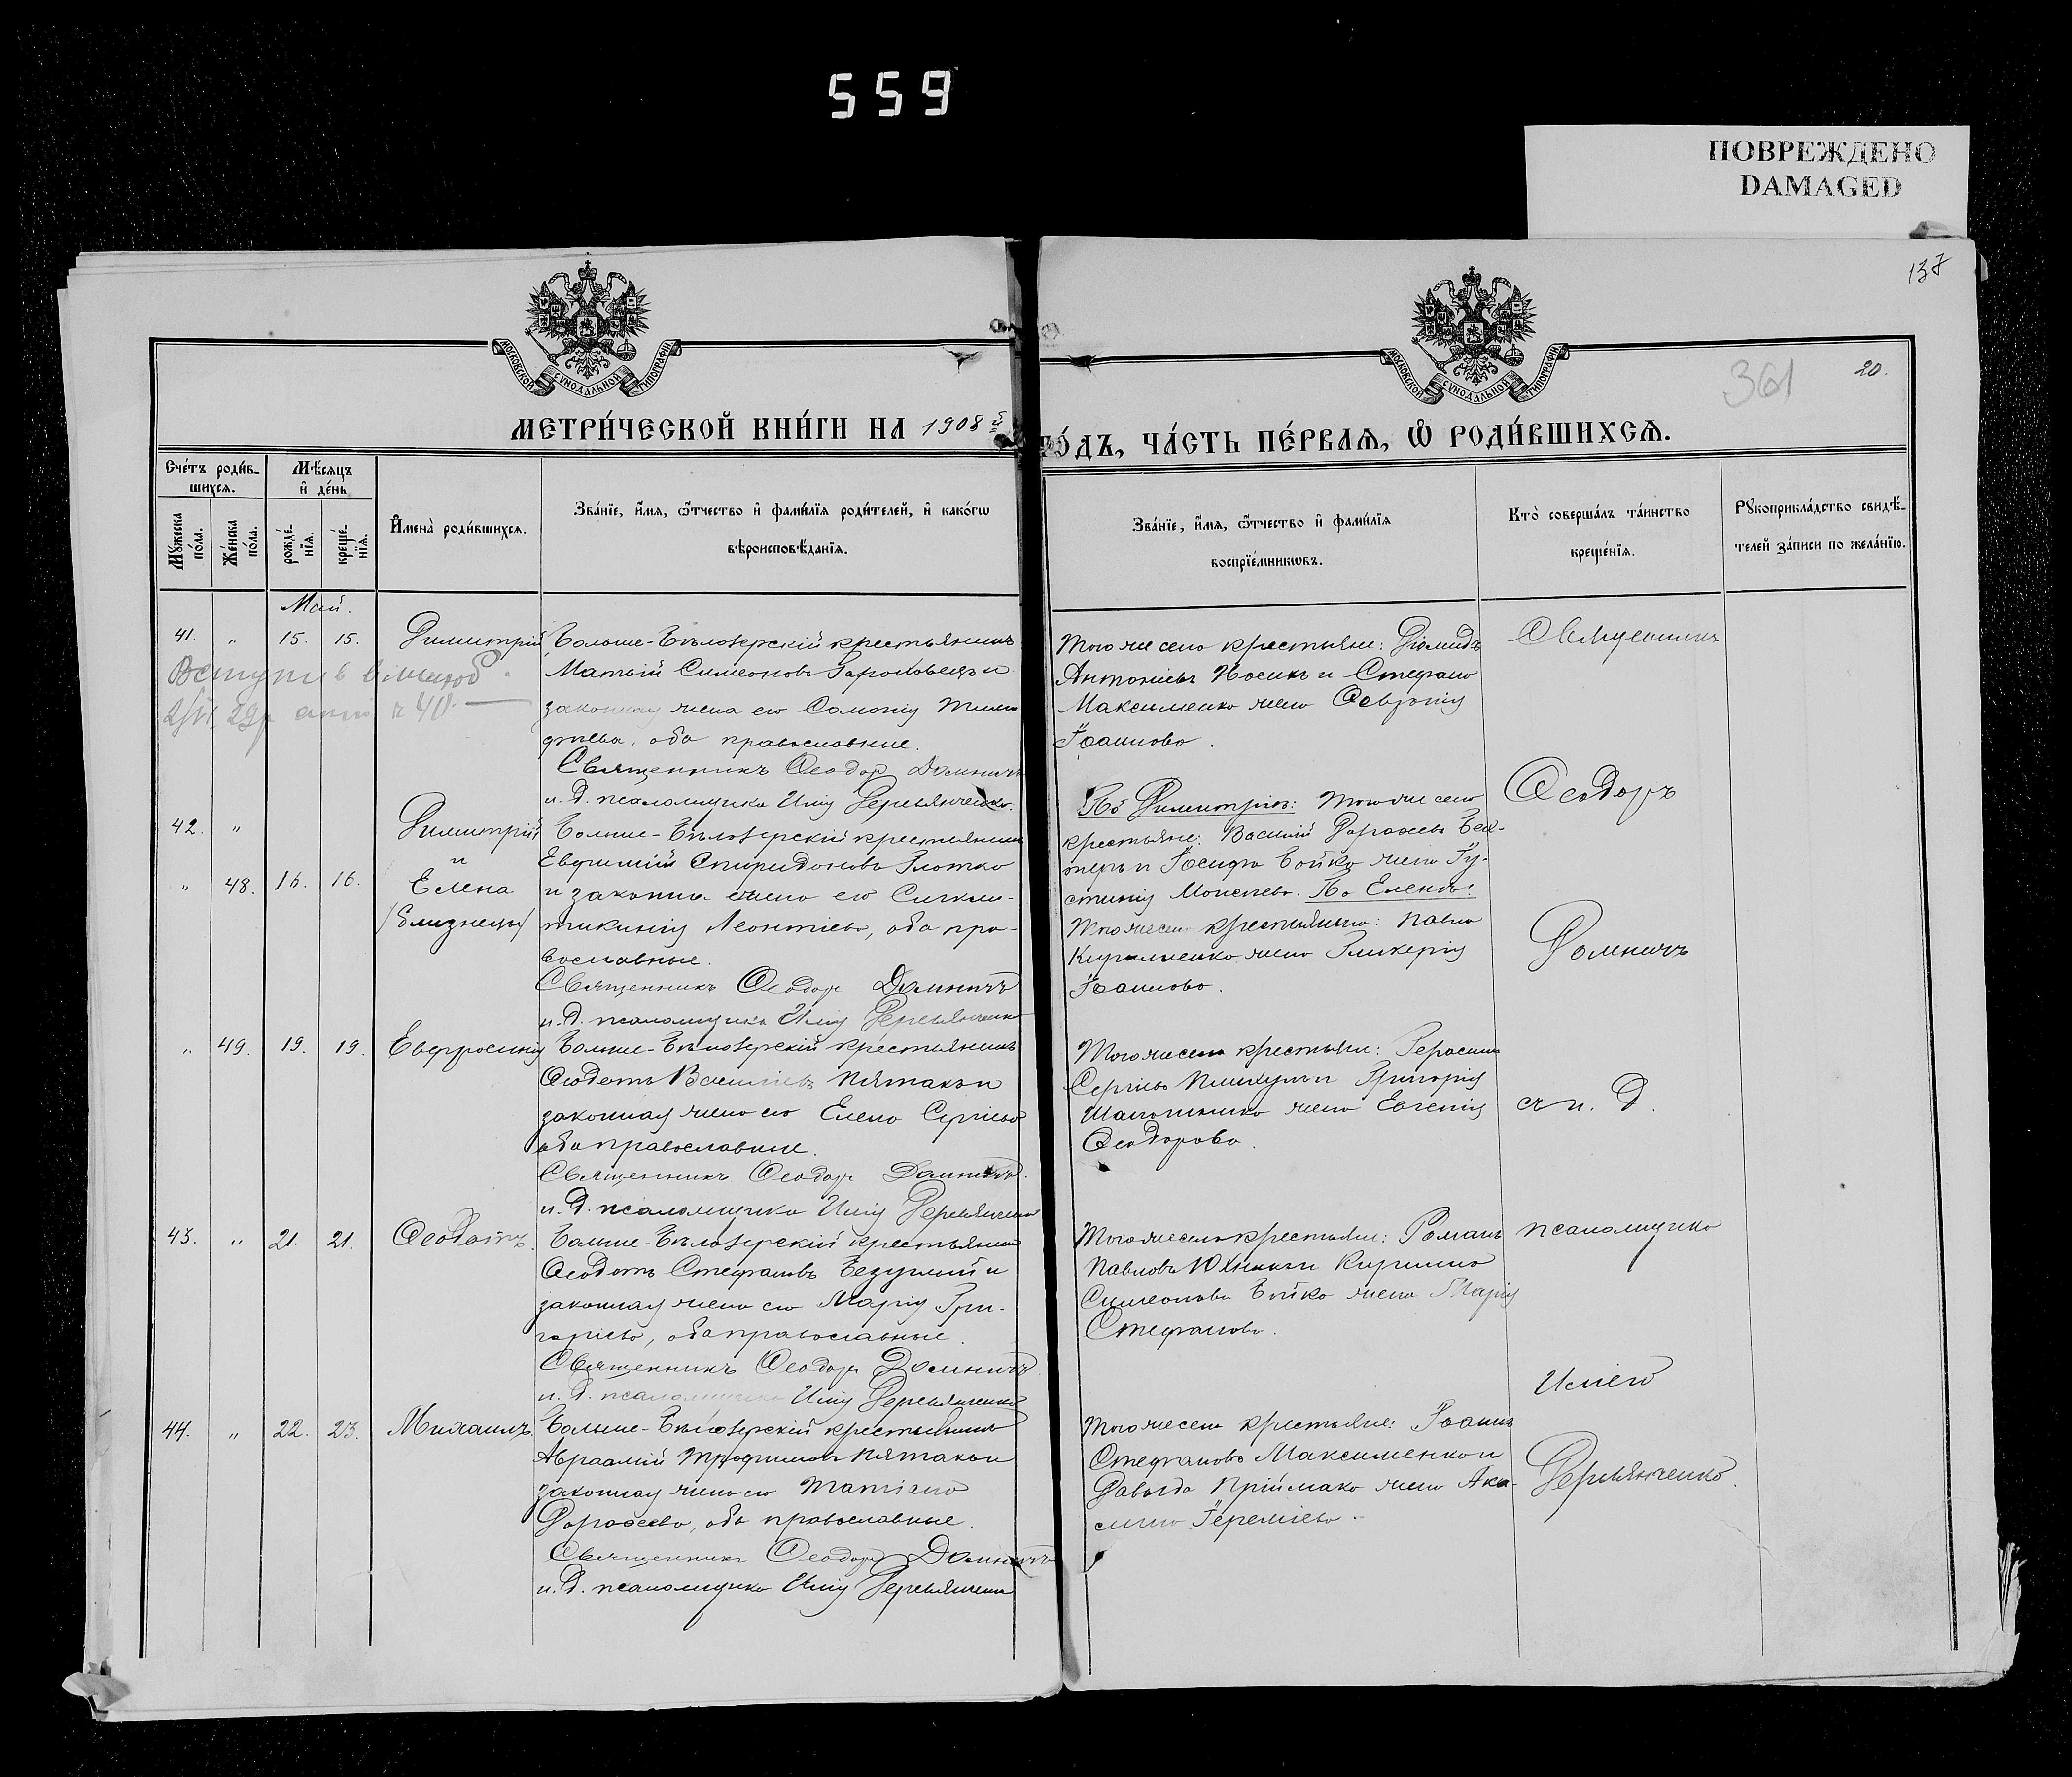 559
ПОВРЕЖДЕНО
DAMAGED
137
361
20.
МОСКОВСКОЙ СУНОДАЛЬНОЙ ТИПОГРАФІИ
МОСКОВСКОЙ СУНОДАЛЬНОЙ ТИПОГРАФІИ
МЕТРИ́ЧЕСКОЙ КНИ́ГИ НА 1908 й
ГО́ДЪ, ЧА́СТЬ ПЕ́РВАѦ, Ѡ҆ РОДИ́ВШИХСѦ.
Сче́тъ роди́в-
шихсѧ.
Мѣ́сѧцъ
и҆ де́нь
Мꙋ́жеска
по́ла.
Же́нска
по́ла.
рожде́-
нїѧ.
креще́-
нїѧ.
И҆мена̀ роди́вшихсѧ.
Зва́нїе, и҆́мѧ, ѻ҆́тчество и҆ фами́лїѧ роди́телей, и҆ како́гѡ
вѣроисповѣ́данїѧ.
Зва́нїе, и҆́мѧ, ѻ҆́тчество и҆ фами́лїѧ
воспрїе́мникѡвъ.
Кто̀ соверша́лъ та́инство
креще́нїѧ.
Рꙋкоприкла́дство свидѣ́-
телей за́писи по жела́нїю.
Май.
41. " 15. 15. Димитрій
Больше-Бѣлозерскій крестьянинъ
Матѳій Симеоновъ и
законная жена его Соломонія
оба православные.
Священникъ Ѳеодоръ Домничъ
и. д. псаломщика Илія Деревянченко.
Того же села крестьяне: Діомидъ
Антоніевъ Носикъ и Стефана
Максименко жена Февронія
Іоаннова.
Священникъ
Ѳеодоръ
Домничъ
съ и. д.
псаломщика
Иліею
Деревянченко.
42. " Димитрій
и
" 48. 16. 16. Елена
/близнецы/
Больше-Бѣлозерскій крестьянинъ
Евфимій Спиридоновъ Злотко
и законная жена его Синкли-
тикинія Леонтіева, оба пра-
вославные.
Священникъ Ѳеодоръ Домничъ
и. д. псаломщика Илія Деревянченко
По Димитрію: Того же села
крестьяне: Василій Дороѳеевъ
и Іосифа Бойко жена Іу-
стинія Моисеева. По Еленѣ:
Того же села крестьянина: Павла
Кириленко жена Гликерія
Іоаннова.
" 49. 19. 19. Евфросинія
Больше-Бѣлозерскій крестьянинъ
Ѳеодотъ Василіевъ Пятакъ и
законная жена его Елена Сергіева
оба православные.
Священникъ Ѳеодоръ Домничъ.
и. д. псаломщика Илія Деревянченко
Того же села крестьяне: Герасимъ
Сергіевъ и Григорія
жена Евгенія
Ѳеодорова.
43. " 21. 21. Ѳеодотъ.
Больше-Бѣлозерскій крестьянинъ
Ѳеодотъ Стефановъ Безуглый и
законная жена его Марія Гри-
горіева, оба православные.
Священникъ Ѳеодоръ Домничъ
и. д. псаломщика Илія Деревянченко
Того же села крестьяне: Романъ
Павловъ Юхника и Кирилла
Симеонова Бойко жена Марія
Стефанова.
44. " 22. 23. Михаилъ.
Больше-Бѣлозерскій крестьянинъ
Авраамій Трофимовъ Пятакъ и
законная жена его Татіана
Дороѳеева, оба православные.
Священникъ Ѳеодоръ Домничъ
и. д. псаломщика Илія Деревянченко
Того же села крестьяне: Іоаннъ
Стефановъ Максименко и
Давида Пріймака жена Аки-
лина Іереміева.